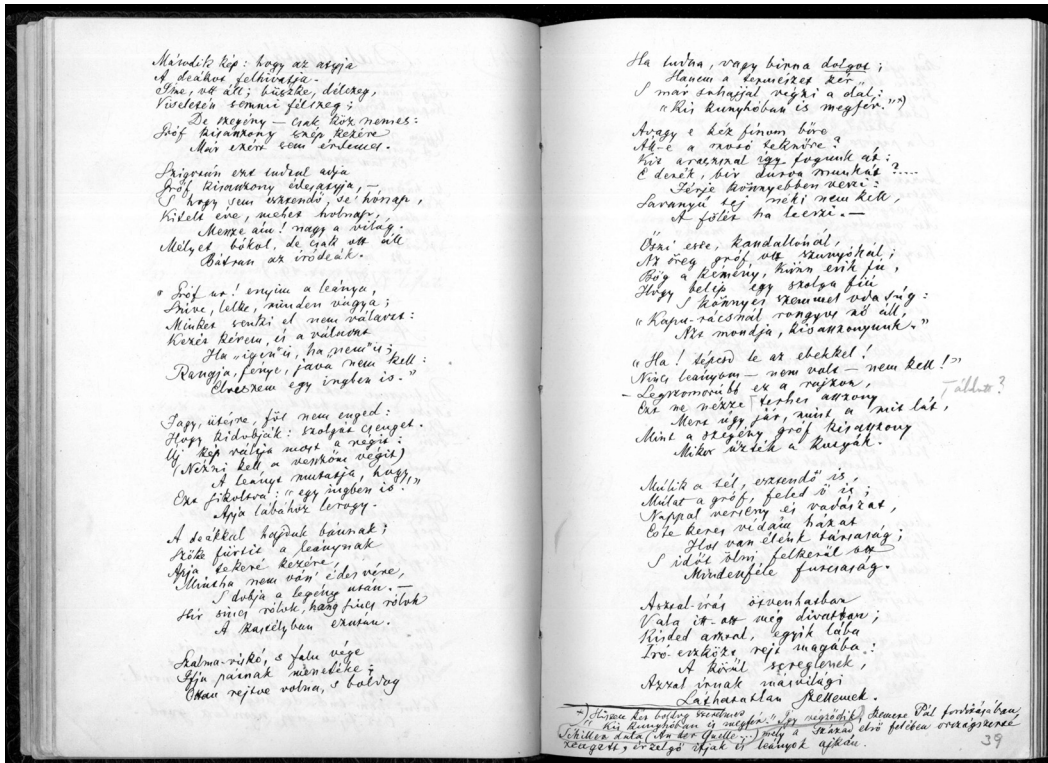 Második kép: hogy az atyja
A deákot felhivatja.
Ime, ott áll; büszke, délczeg,
Viseletén semmi félszeg;
De szegény — csak köz nemes:
Gróf kisasszony szép kezére
Már ezért sem érdemes.
Szigorúan ezt tudtul adja
Gróf kisasszony édesatyja, —
S hogy sem esztendő, se' hónap,
Kitelt éve, mehet holnap,
Messze ám! nagy a világ.
Mélyet bókol, de csak ott áll
Bátran az íródeák.
„Gróf ur! enyim a leánya,
Szíve, lelke, minden vágya;
Minket senki el nem választ:
Kezét kérem, és a választ
Ha „igen" is, ha „nem" is;
Rangja, fénye, java nem kell:
Elveszem egy ingben is."
Jagy, ütésre, föl nem enged:
Hogy kidobják: szolgát csenget.
Uj kép váltja most a régit:
(Nézni kell a vesszőm végit)
A leányt mutatja, hogy
Ezt sikoltva: „egy ingben is!"
Apja lábához lerogy.
A deákkal hajduk bánnak;
Szőke fürtit a leánynak
Apja tekeré kezére,
Mintha nem vón' édes vére,
S dobja a legény után. —
Hír sincs rólok, hang sincs rólok
A kastélyban ezután.
Szalma-viskó, s falu vége
Ifju párnak menetéke;
Ottan rejtve volna, s boldog
Ha tudna, vagy birna dolgot;
Hanem a természet kér
S már sohajjal végzi a dal:
„Kis kunyhóban is megfér."*)
Avagy e kéz finom bőre
Ak-é a mosó teknőre?
Kis araszszal így fogunk át:
E derék, bír durva munkát?....
Férje könnyebben veszi:
Savanyú tej néki nem kell,
A fölét ha leeszi. —
Őszi este, kandallónál,
Az öreg gróf ott szunyókál;
Bőg a kemény, künn esik fú,
Hogy belép egy szolga fiú
S könnyes szemmel oda súg:
„Kapu-rácsnál rongyos nő áll,
Azt mondja, kisasszonyunk."
„Ha! tépesd le az ebekkel!
Nincs leányom — nem volt — nem kell!"
— Legszomorúbb ez a rajzon,
Ezt ne nézze terhes asszony
áldott?
Mert úgy jár, mint a mit lát,
Mint a szegény gróf kisasszony
Mikor űzték a kutyák.
Múlik a tél, esztendő is,
Múlat a gróf, feled ő is;
Nappal verseny és vadászat,
Este keres vídám házat
Hol van élénk társaság;
S időt ölni felkerül ott
Mindenféle furcsaság.
Asztal-írás ötvenhatban
Vala itt-ott még divatban;
Kisded asztal, egyik lába
Író eszközt rejt magába:
A körül sereglenek,
Azzal írnak másvilági
Láthatatlan szellemek.
*) Hiszen két boldog szerelmes
Kis kunyhóban is megfér." Igy végződik Szemere Pál fordításában
Schiller dala (An der Quelle...) mely a század első felében országszerte
zengett, érzelgő ifjak és leányok ajkán.
39